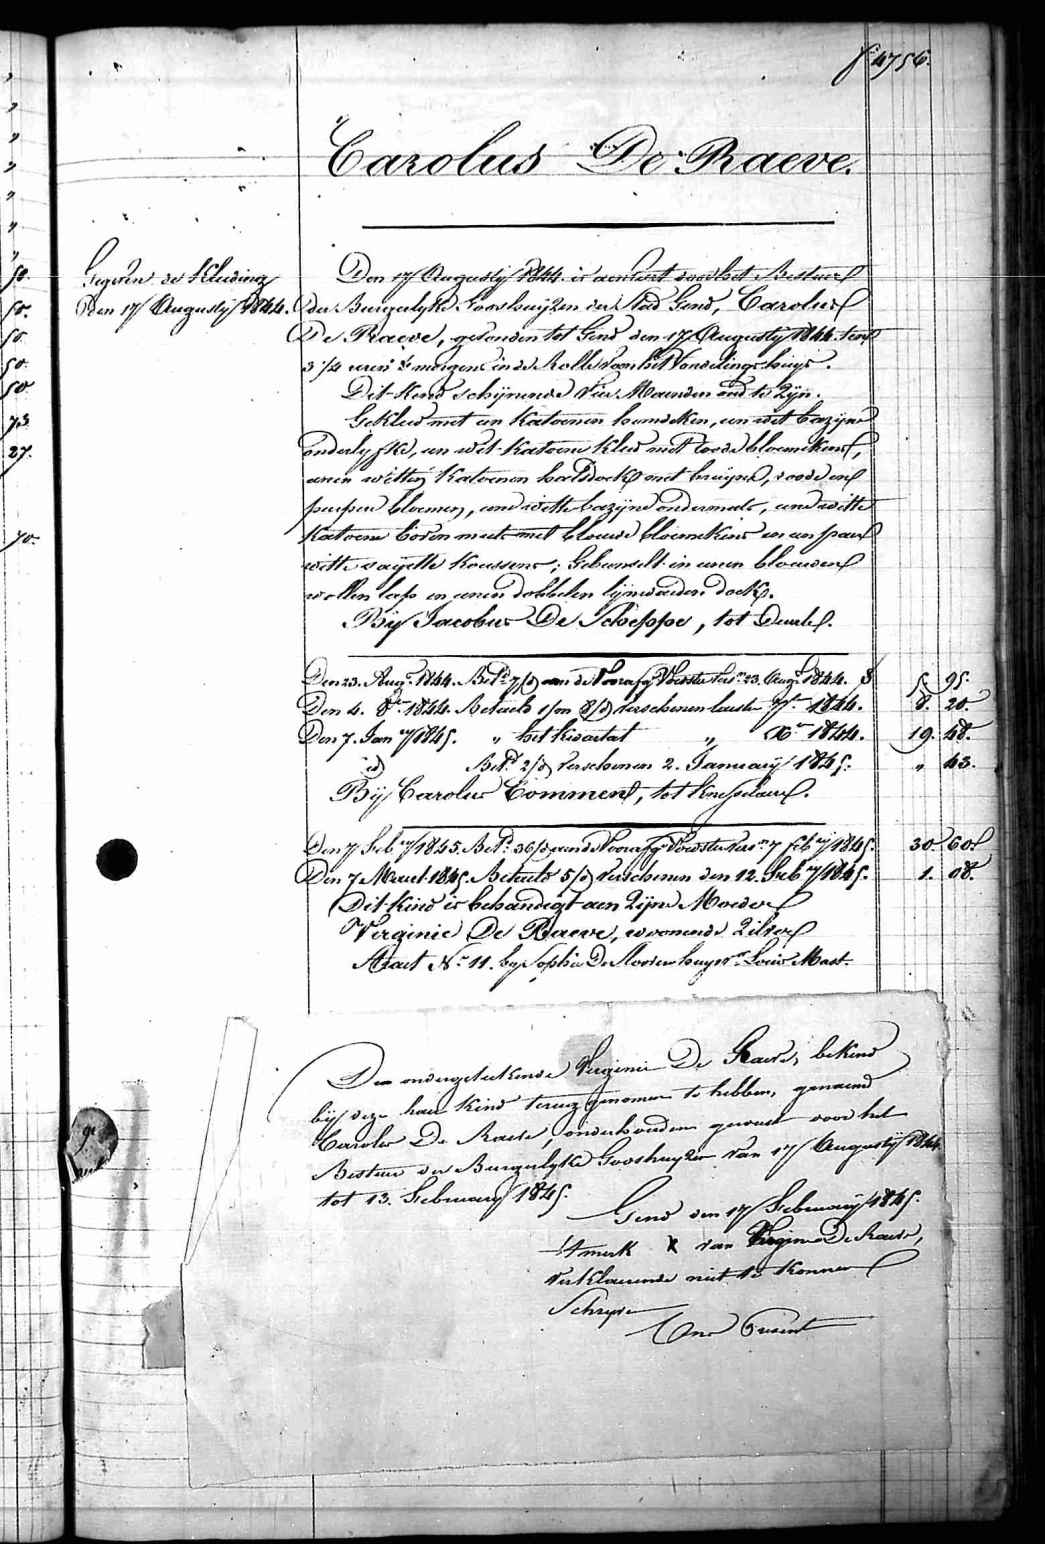 f° 4756.
Carolus De Raeve.
Gegeven de Kleeding
Den 17 Augusty 1844.
Den 17 Augusty 1844 is aenveert door het Bestuer
der Burgerlyke Godshuyzen der Stad Gend, Carolus
De Raeve, gevonden tot Gend den 17 Augusty 1844 ten
3 1/2 uren 's morgens in de Rolle van het Vondelings huys.
Dit Kend schijnende Vier Maenden oud te Zijn.
Gekleed met een Katoenen hemdeken, een wit bazyne
onderlyfke, een wit Katoene Kleed met roode bloemekens,
eenen witten Katoenen halsdoek met bruyne, roode en
purpere bloemen, eene witte bazyne ondermuts, eene witte
Katoene boven muts met blauwe bloemekens en een paer
witte sayette Koussens; Gebunselt in eenen blauwen
wollen lap en eenen dobbelen lijnwaeden doek.
Bij Jacobus De Scheppe, tot Deurle.
Den 23. Aug. 1844. Bet. 7/d aen de Voorafg. Voedster Vers. 23. Aug. 1844. 5. 95.
Den 4. 8.er 1844. Betaeld Verschenen laeste 7.er 1844. 8. 20.
Den 7. Jan.y 1845. " het kwartael " X.er 1844. 19. 48.
id Bet. 2/d Verschenen 2. January 1845. " 43.
Bij Carolus Commen, tot Knesselaere.
Den 7 Feb.y 1845. Bet. 36/d aen de Voorafg. Voedster Vers. 7 feb.y 1845. 30 60
Den 7 Maert 1845. Betaeld 5/d Verschenen den 12. Feb.y 1845. 1. 08.
Dit Kind is behandigt aen Zijne Moeder
Virginie De Raeve, woonende Zilver
Straet N.° 11. by Sophie De huysv.w Louis Mast.
De ondergeteekende Virginie De Raeve, bekend
bij deze haer Kind terug genomen te hebben, genaemd
Carolus De Raeve, onderhouden geweest door het
Bestuer der Burgerlyke Godshuyzen van 17 Augusty 1844
tot 13. February 1845.
Gend den 17 February 1845.
't merk X van Virginie De Raeve,
verklaerende niet te konnen
Schryven